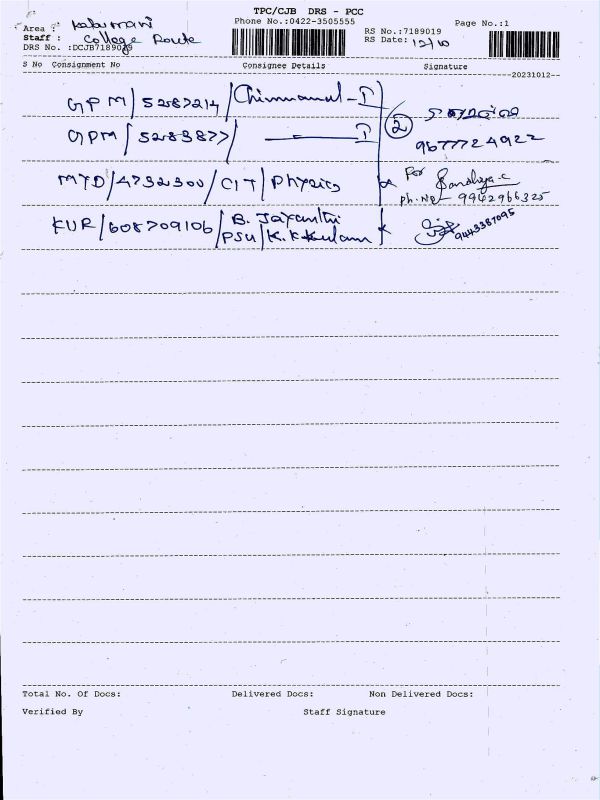 TPC/CJB DRS - PCC
Area :
Phone No.:0422-3505555
Page No.:1
RS No.:7189019
Staff : College Route
RS Date: 12/10
DRS No. :DCJB7189019
S No Consignment No Consignee Details Signature
20231012--
GPM/5287214/ I
GPM/5283877/ I
2
9677724922
MYD/4732300/CIT/Physics
For Sandhya.c
Ph.No 9942966325
KUR/608709106/B. Jayanthi
PSU/K.K
9443387095
Total No. Of Docs: Delivered Docs: Non Delivered Docs:
Verified By Staff Signature